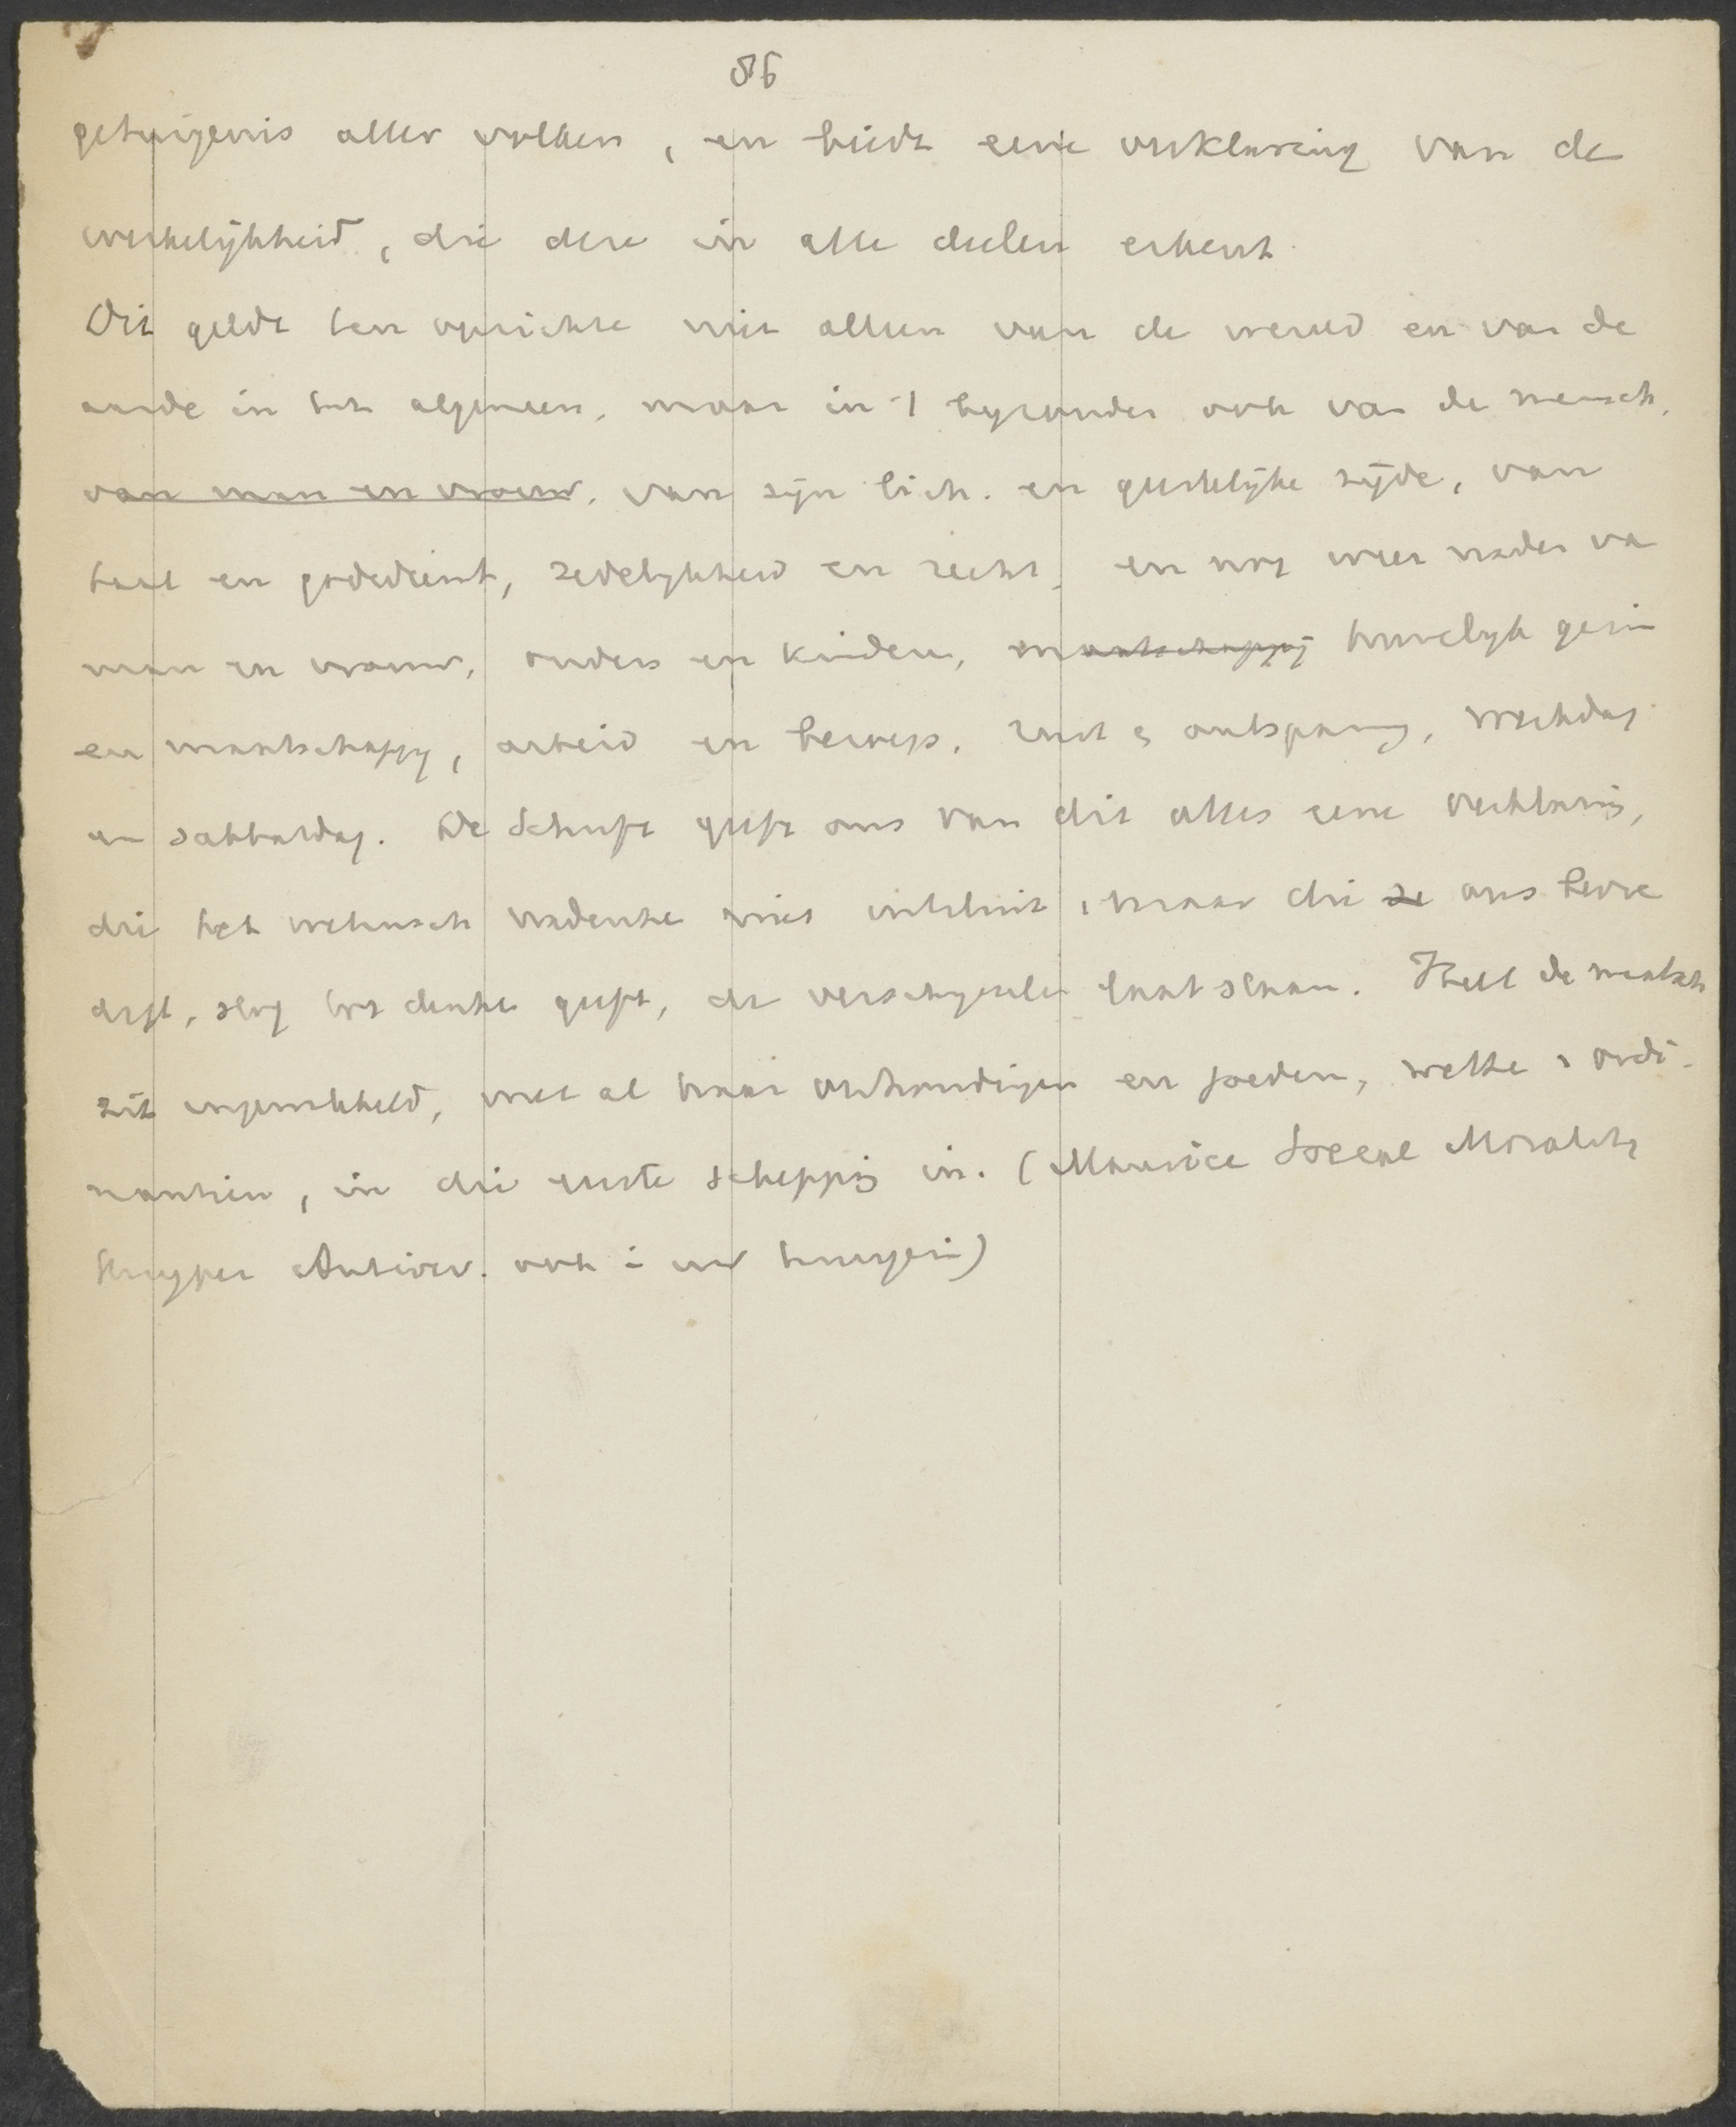 86
getuigenis aller volken, en biedt eene verklaring van de
werkelijkheid, die deze in alle deelen erkent.
Dit geldt ten opzichte niet alleen van de wereld en van de
aarde in het algemeen, maar in 't byzonder ook van de mensch,
van man en vrouw, van zijn lich. en geestelijke zijde, van
taal en godsdienst, zedelykheid en recht, en nog weer nader va
man en vrouw, ouders en kinderen, maatschappij huwelyk gezin
en maatschappy, arbeid en beroep, rust en ontspanng, werkdag
en sabbatdag. De Schrift geeft ons van dit alles eene verklaring,
die het wetensch nadenke niet uitsluit, maar die ze ons
stof tot denke geeft, de verschynsele laat staan. Heel de maatsch
zit ingewikkeld, met al haar verhoudingen en goederen, welke ordi-
nantien, in die eerste schepping in. (Maurice Social Morality
Kuyper Antirev. ook)